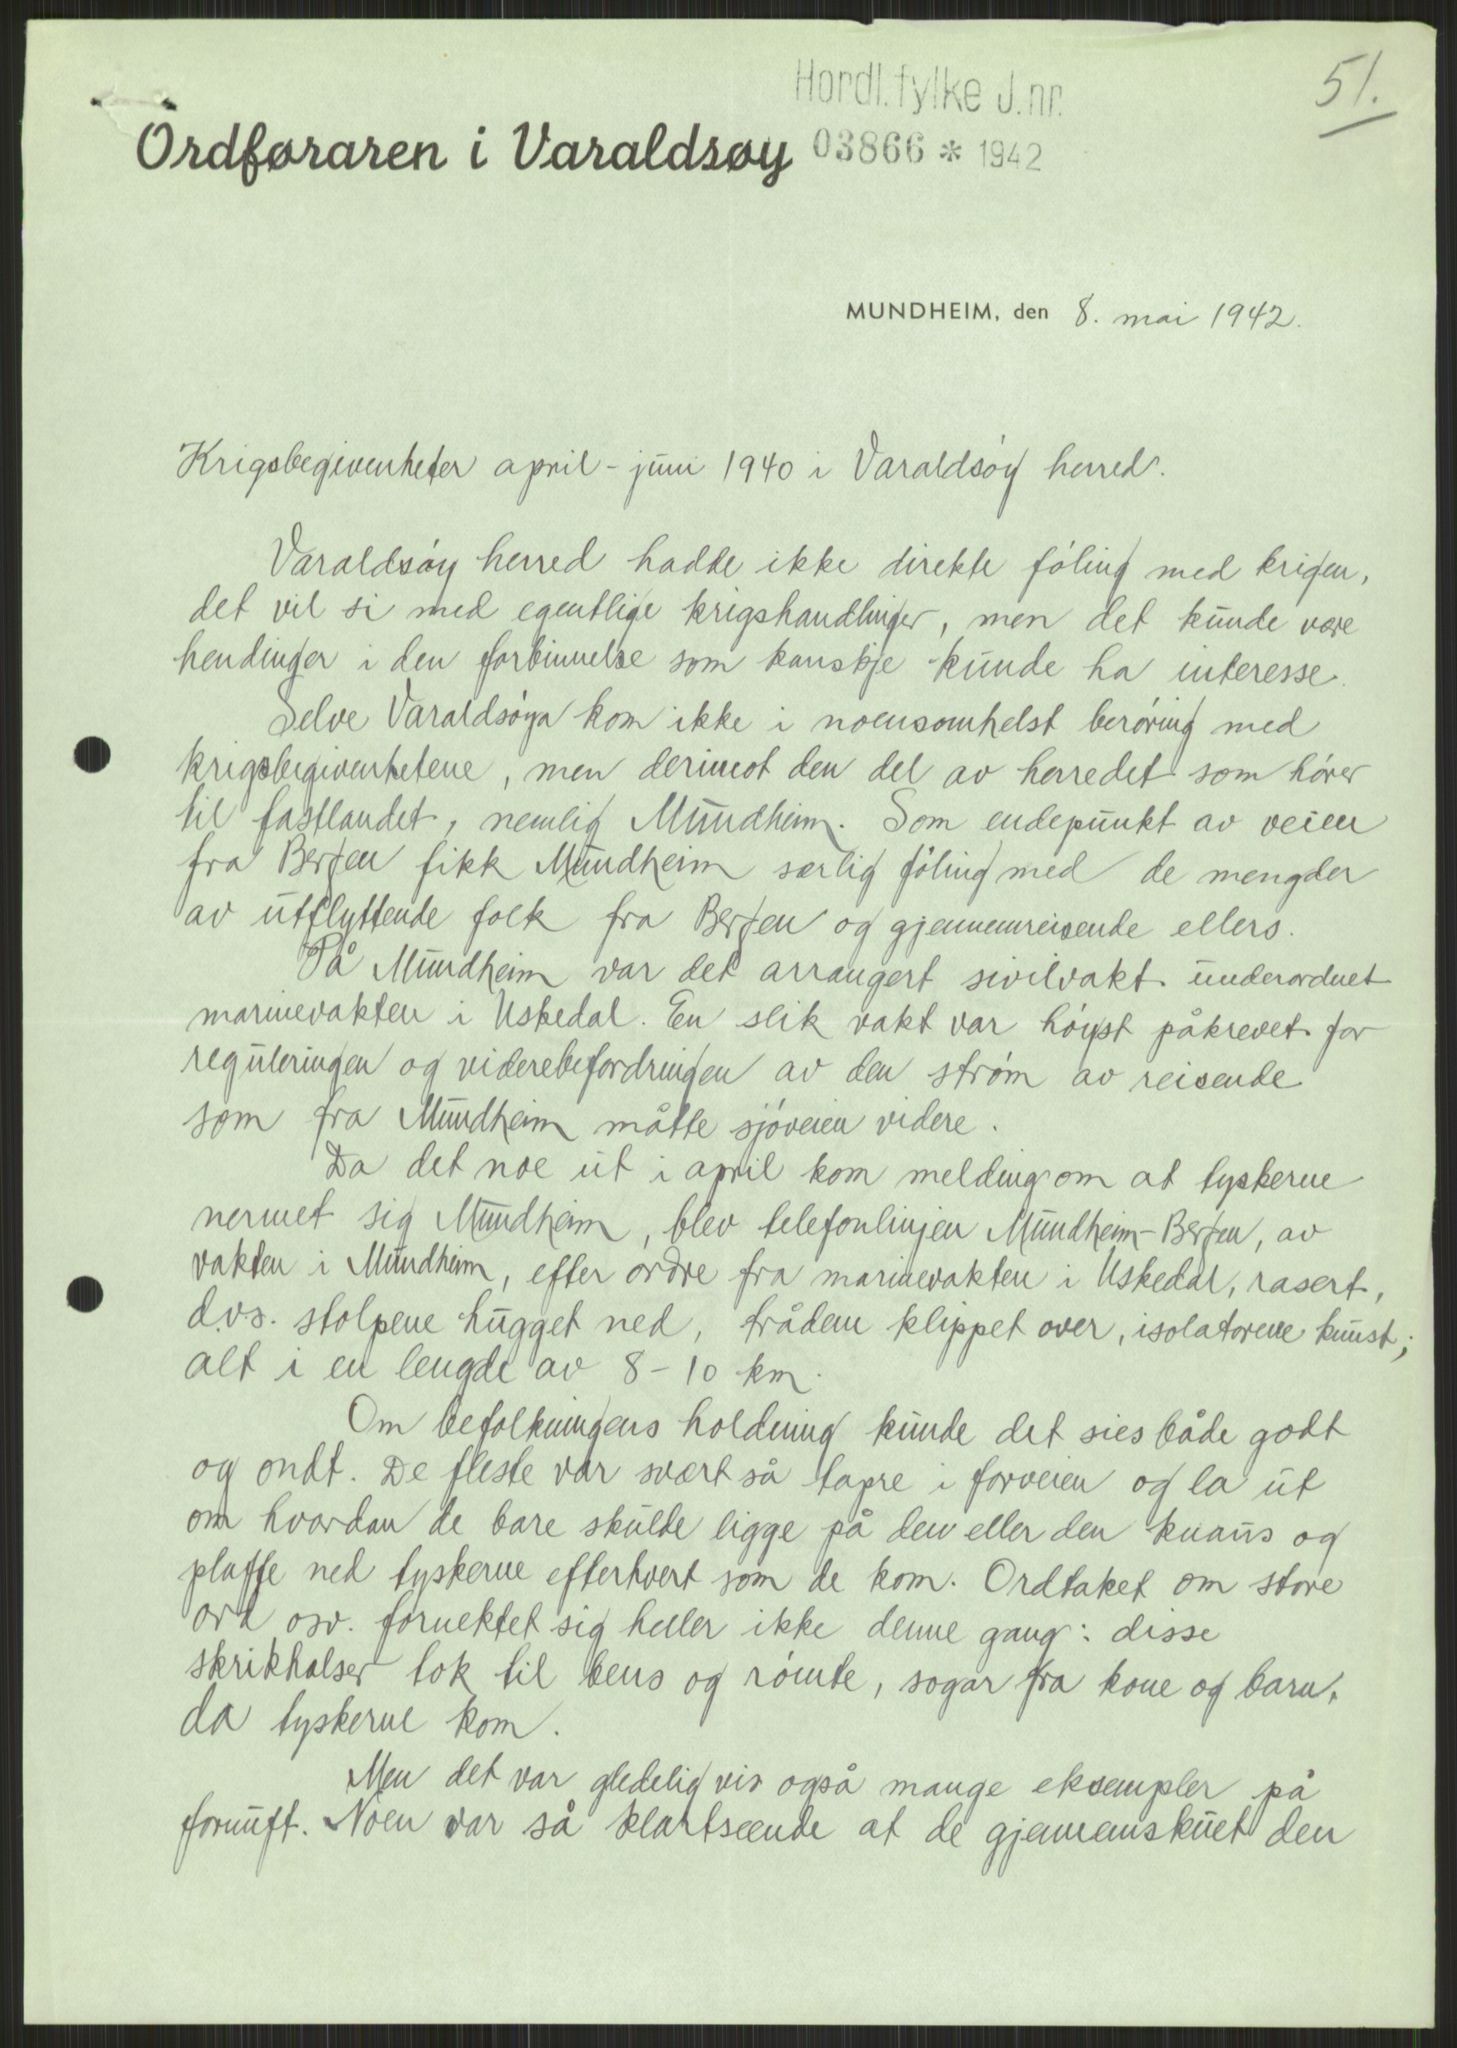 51.
Hordl. fylke J.nr.
Ordføraren i Varaldsøy 03866 * 1942
MUNDHEIM, den 8. mai 1942.
Krigsbegivenheter april - juni 1940 i Varaldsøy herred.
Varaldsøy herred hadde ikke direkte føling med krigen,
det vil si med egentlige krigshandlinger, men det kunde være
hendinger i den forbinnelse som kanskje kunde ha interesse.
Selve Varaldsøya kom ikke i noensomhelst berøring med
krigsbegivenhetene, men derimot den del av herredet som hører
til fastlandet, nemlig Mundheim. Som endepunkt av veien
fra Bergen fikk Mundheim særlig føling med de mengder
av utflyttende folk fra Bergen og gjennemreisende ellers.
På Mundheim var det arrangert sivilvakt underordnet
marinevakten i Uskedal. En slik vakt var høyst påkrevet for
reguleringen og viderebefordringen av den strøm av reisende
som fra Mundheim måtte sjøveien videre.
Da det noe ut i april kom melding om at tyskerne
nermet sig Mundheim, blev telefonlinjen Mundheim - Bergen, av
vakten i Mundheim, efter ordre fra marinevakten i Uskedal, rasert,
d.v.s. stolpene hugget ned, tråden klippet over, isolatorene knust;
alt i en lengde av 8 - 10 km.
Om befolkningens holdning kunde det sies både godt
og ondt. De fleste var svært så tapre i forveien og la ut
om hvordan de bare skulde ligge på den eller den knaus og
plaffe ned tyskerne efterhvert som de kom. Ordtaket om store
ord osv. fornektet sig heller ikke denne gang: disse
skrikhalser tok til bens og rømte, sogar fra kone og barn,
da tyskerne kom.
Men det var gledelig vis også mange eksempler på
fornuft. Noen var så klartseende at de gjennemskuet den